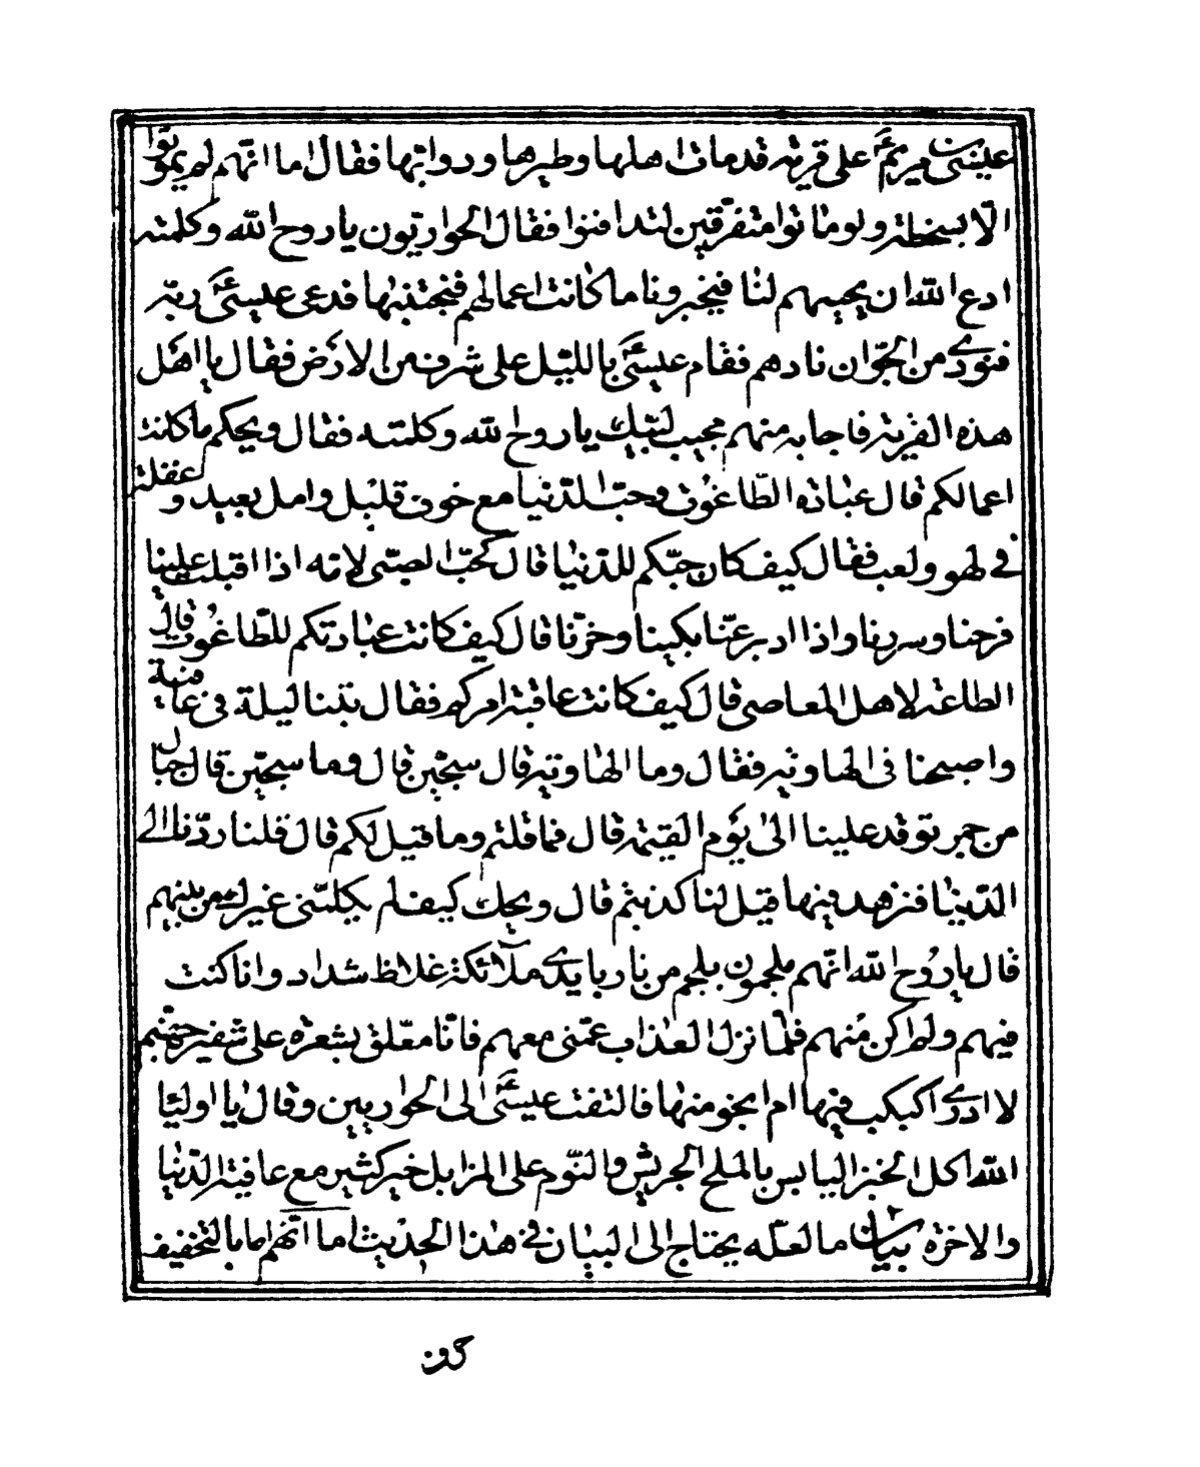 عيسى بن مريم ع على قرية قد مات اهلها وطيرها ودوابها فقال اما انهم لم يموتوا
الّا بسخطة ولو ماتوا متفرّقين لتدافنوا فقال الحواريّون يا روح الله وكلمته
ادع الله ان يحييهم لنا فيخبرونا ما كانت اعمالهم فنجتنبها فدعى عيسى ع ربّه
فنودي من الجوّ ان نادهم فقام عيسى ع بالليل على شرف من الارض فقال يا اهل
هذه القرية فاجابه منهم مجيب لبّيك يا روح الله وكلمته فقال ويحكم ما كانت
اعمالكم قال عبادة الطّاغوت وحبّ الدّنيا مع خوف قليل وامل بعيد و غفلة
في لهو ولعب فقال كيف كان حبّكم للدّنيا قال كحبّ الصبّى لامّه اذا اقبلت علينا
فرحنا وسررنا واذا ادبر عنّا بكينا وحزنّا قال كيف كانت عبادتكم للطّاغوت قال
الطاعة لاهل المعاصى قال كيف كانت عاقبة امركم فقال بتنا ليلة في عافية
واصبحنا في الهاوية فقال وما الهاوية قال سجّين قال وما سجّين قال جبال
من جمر توقد علينا الى يوم القيمة قال فما قلتم وما قيل لكم قال قلنا ردّنا الى
الدّنيا فنزهد فيها قيل لنا كذبتم قال ويحك كيف لم يكلّمنى غيرك من بينهم
قال يا روح الله انّهم ملجمون بلجم من نار بايدي ملائكة غلاظ شداد وانا كنت
فيهم ولم اكن منهم فلمّا نزل العذاب عمّنى معهم فانا معلّق بشعرة على شفير جهنّم
لا ادري اكبكب فيها ام انجو منها فالتفت عيسى ع الى الحواريين وقال يا اولياء
الله اكل الخبز اليابس بالملح الجريش والنّوم على المزابل خير كثير مع عافية الدّنيا
والاخرة بيان ما لعلّه يحتاج الى البيان في هذا الحديث اما انّهم اما بالتخفيف